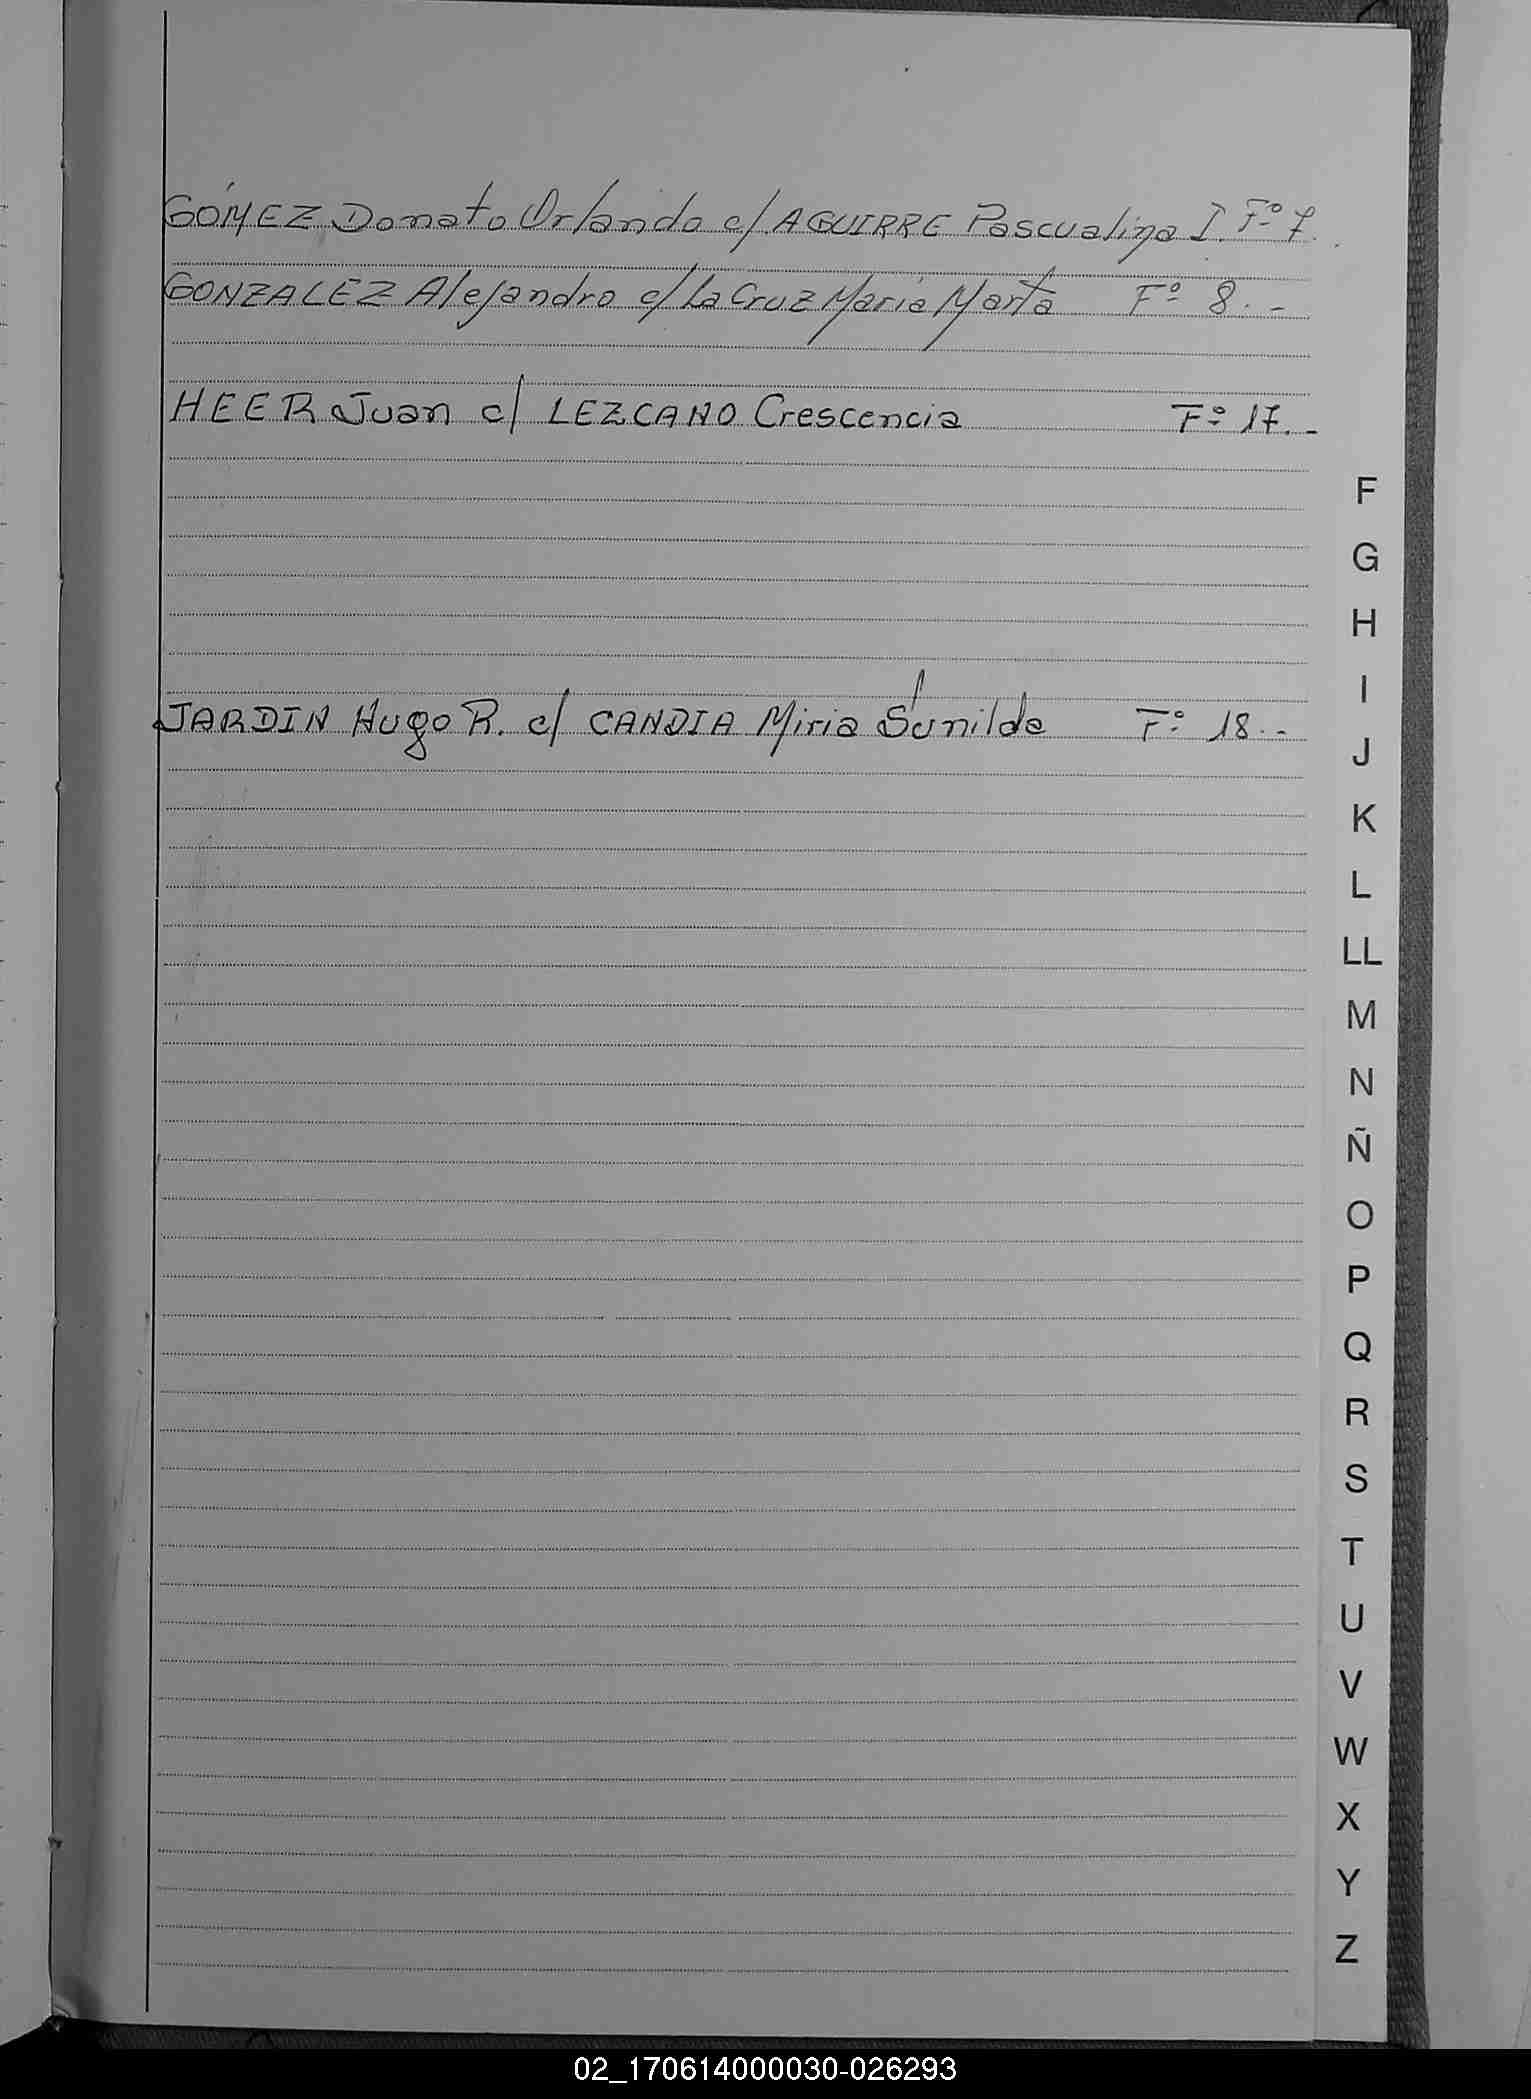 GÓMEZ Donato Orlando c/ AGUIRRE Pascualina I. Fº 7.
GONZALEZ Alejandro c/ La Cruz María Marta Fº 8.-
HEER Juan c/ LEZCANO Crescencia Fº 17.-
F
G
H
I
JARDIN Hugo R. c/ CANDIA Miria Sunilda Fº 18.-
J
K
L
LL
M
N
Ñ
O
P
Q
R
S
T
U
V
W
X
Y
Z
02_170614000030-026293